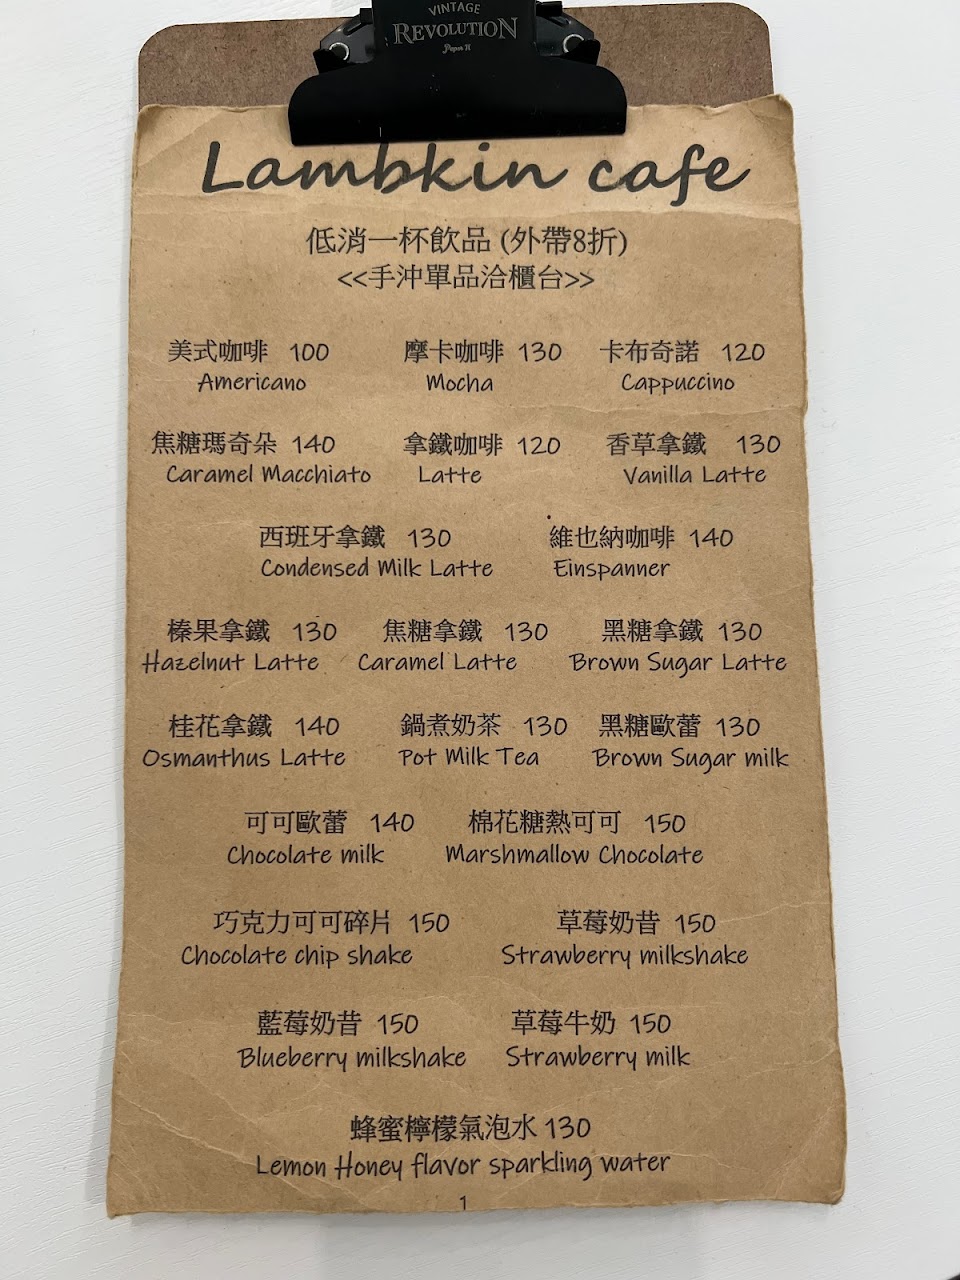 VINTAGE
REVOLUTION
Paper H
Lambkin cafe
低消一杯飲品 (外帶8折)
<<手沖單品洽櫃台>>
美式咖啡 100 摩卡咖啡 130 卡布奇諾 120
Americano Mocha Cappuccino
焦糖瑪奇朵 140 拿鐵咖啡 120 香草拿鐵 130
Caramel Macchiato Latte Vanilla Latte
西班牙拿鐵 130 維也納咖啡 140
Condensed Milk Latte Einspanner
榛果拿鐵 130 焦糖拿鐵 130 黑糖拿鐵 130
Hazelnut Latte Caramel Latte Brown Sugar Latte
桂花拿鐵 140 鍋煮奶茶 130 黑糖歐蕾 130
Osmanthus Latte Pot Milk Tea Brown Sugar milk
可可歐蕾 140 棉花糖熱可可 150
Chocolate milk Marshmallow Chocolate
巧克力可可碎片 150 草莓奶昔 150
Chocolate chip shake Strawberry milkshake
藍莓奶昔 150 草莓牛奶 150
Blueberry milkshake Strawberry milk
蜂蜜檸檬氣泡水 130
Lemon Honey flavor sparkling water
1